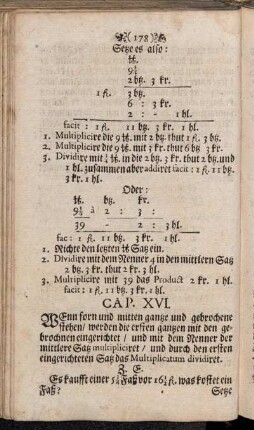 (178)
Setze es also:
℔.
9¾
2 btz. 3 kr.
1 fl. 3 btz.
6 : 3 kr.
2 : - 1 hl.
facit : 1 fl. 11 btz. 3 kr. 1 hl.
1. Multiplicire die 9 ℔. mit 2 btz. thut 1 fl. 3 btz.
2. Multiplicire die 9 ℔. mit 3 kr. thut 6 btz 3 kr.
3. Dividire mit ¾ ℔. in die 2 btz. 3 kr. thut 2 btz. und
1 hl. zusammen aber addiret facit : 1 fl. 11 btz.
3 kr. 1 hl.
Oder:
℔. btz. kr.
9¾ à 2 : 3 :
39 - 2 : 3 hl.
fac : 1 fl. 11 btz. 3 kr. 1 hl.
1. Richte den letzten ℔ Satz ein.
2. Dividire mit dem Nenner 4 in den mittlern Satz
2 btz. 3 kr. thut 2 kr. 3 hl.
3. Multiplicire mit 39 das Product 2 kr. 1 hl.
facit : 1 fl. 11 btz. 3 kr. 1 hl.
CAP. XVI.
WEnn forn und mitten gantze und gebrochene
stehen / werden die ersten gantzen mit den ge-
brochnen eingerichtet / und mit dem Nenner der
mittlere Satz multipliciret / und durch den ersten
eingerichteten Satz das Multiplicatum dividiret.
Z. E.
Es kaufft einer Faß vor fl. was kostet ein
Faß? Setze